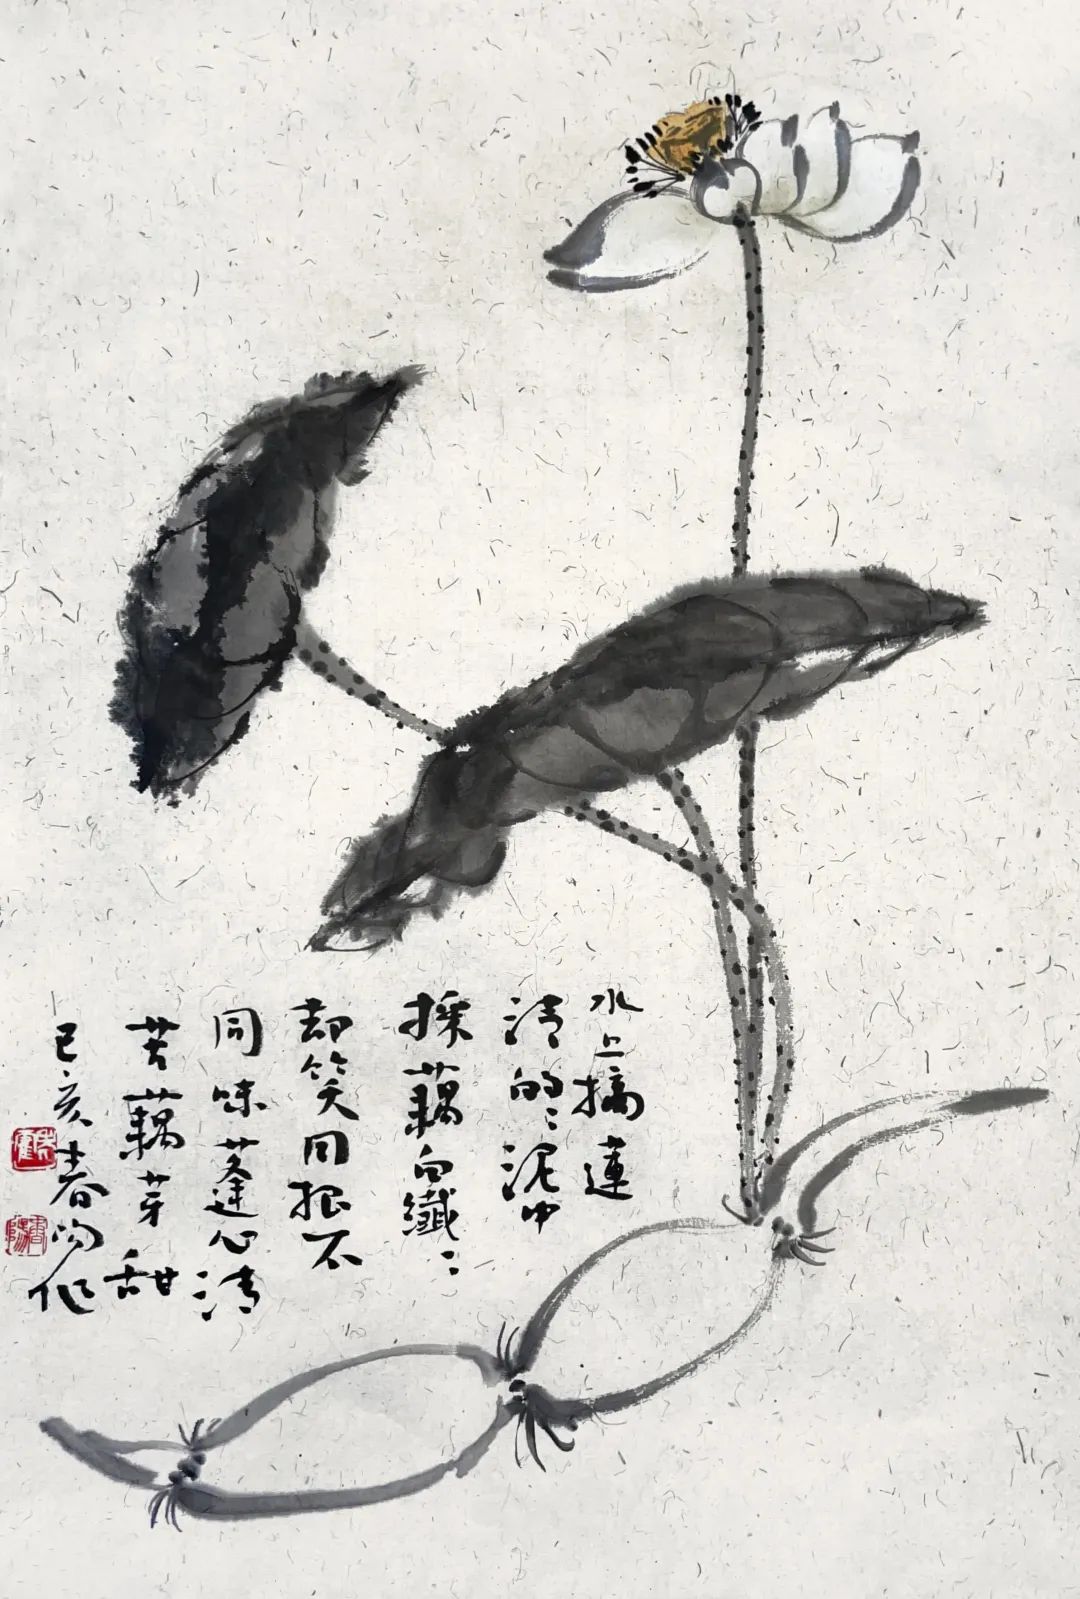 水上摘蓮
清的〻泥中
採藕白纖〻
却笑同根不
同味蓬心清
苦藕芽甜
己亥春作